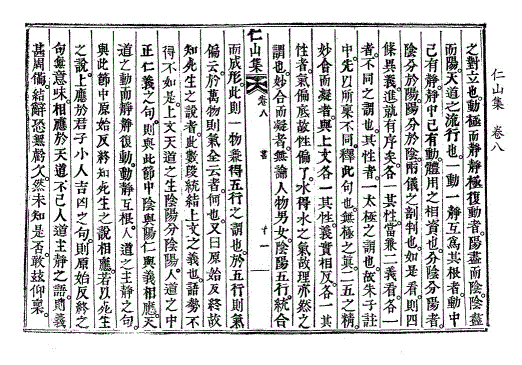 仁山集 卷八
之對立也動極而靜靜極復動者陽盡而陰陰盡
而陽天道之流行也一動一靜互爲其根者動中
已有靜靜中已有動體用之相資也分陰分陽者
陰分於陽陽分於陰兩儀之剖判也如是看則四
條異義進就有序矣各一其性當兼二義看各一
者不同之謂也其性者一太極之謂也故朱子註
中先以所稟不同釋此句也無極之眞二五之精
妙合而凝者與上文各一其性義實相反各一其
性者氣偏底故性偏了水得水之氣故理亦然之
謂也妙合而凝者無論人物男女陰陽五行統合
仁山集 卷八 書 十一
而成形此則一物兼得五行之謂也於五行則氣
偏云於萬物則氣全云者何也又曰原始反終故
知死生之說者此數段統結上文之義也語勢不
得不如是上文天道之生陰陽分陰陽人道之中
正仁義之句則與此節中陰與陽仁與義相應天
道之動而靜靜復動動靜互根人道之主靜之句
與此節中原始反終知死生之說相應若以死生
之說上應於君子小人吉凶之句則原始反終之
句無意味相應於天道不已人道主靜之語則義
甚周備結辭恐無虧欠然未知是否敢玆仰稟